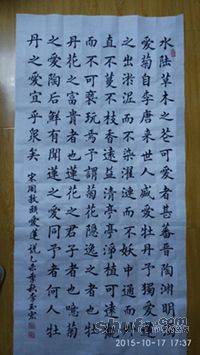 水陸草木之花可愛者甚蕃晉陶淵明獨
愛菊自李唐来世人盛愛牡丹予獨愛蓮
之出淤泥而不染濯清漣而不妖中通外
直不蔓不枝香遠益清亭亭净植可遠觀
而不可褻玩焉予謂菊花隱逸之者也牡
丹花之富貴者也蓮花之君子者也噫菊
之愛陶后鮮有聞蓮之愛同予者何人牡
丹之愛宜乎衆矣 宋周敦頤愛蓮説乙未季秋李
2015-10-17 17:37